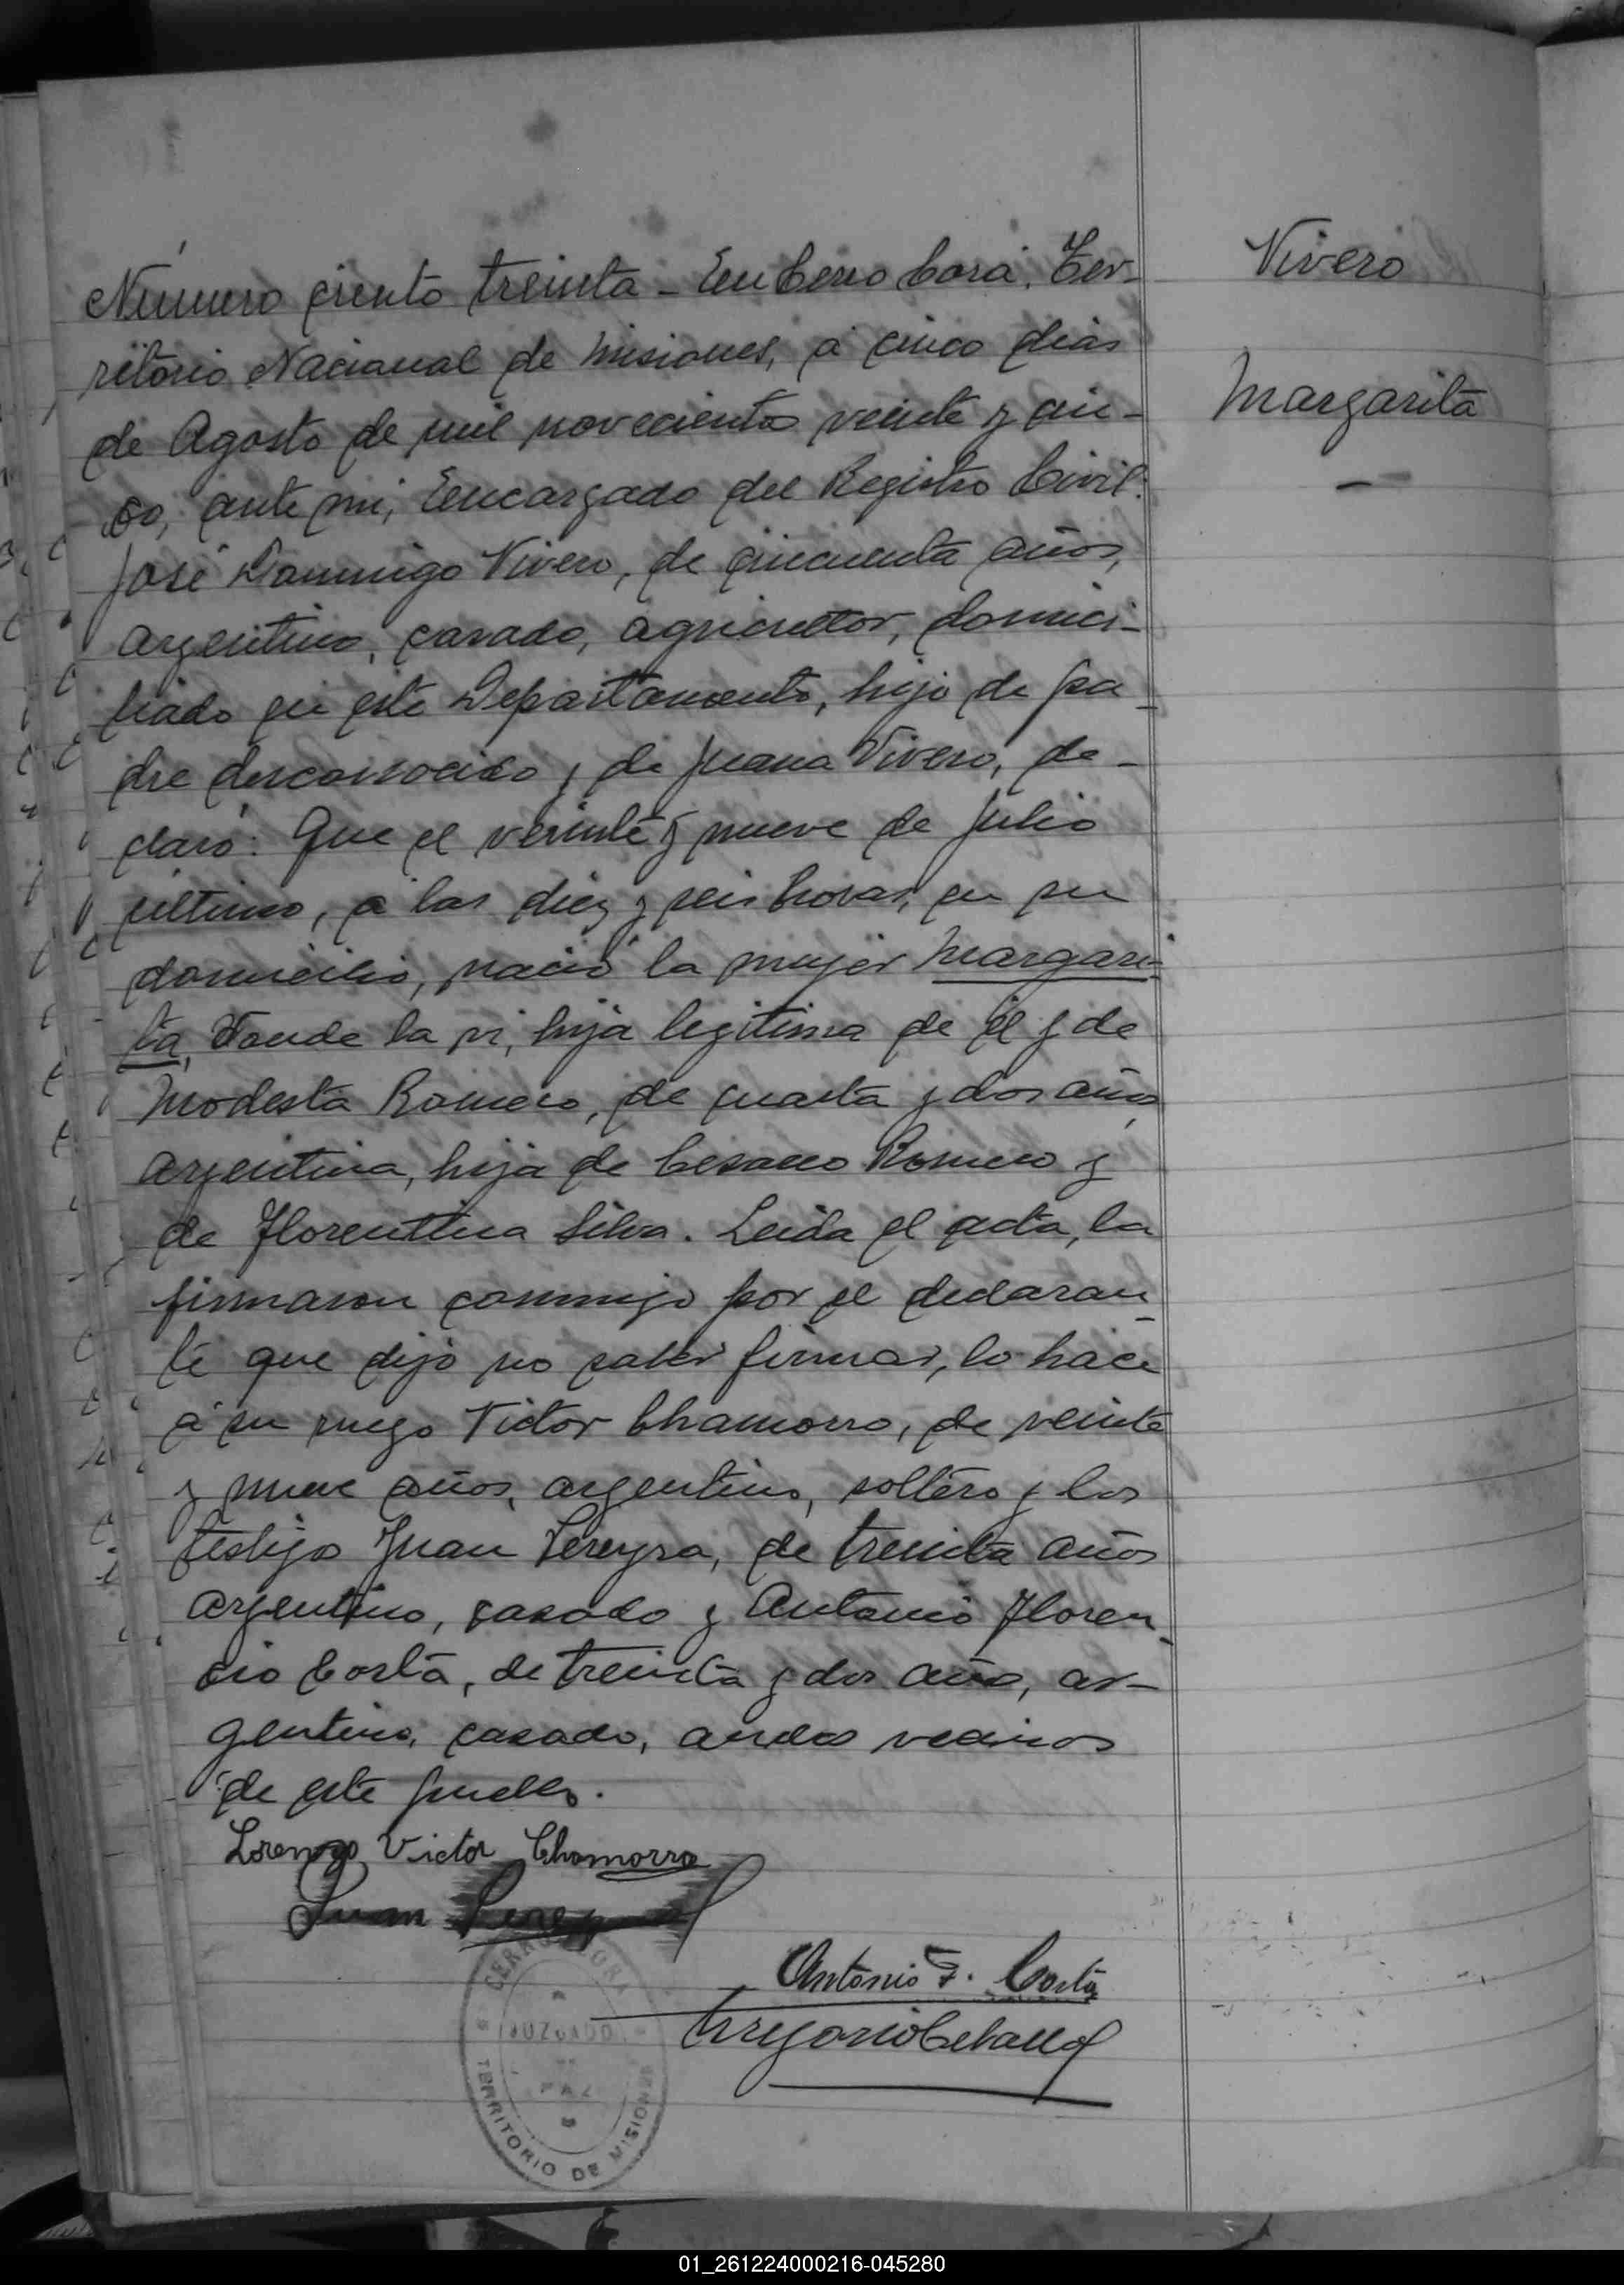 Número ciento treinta - En Cerro Corá, Ter-
ritorio Nacional de Misiones, á cinco dias
de Agosto de mil novecientos veinte y cin-
co, ante mi, Encargado del Registro Civil:
José Domingo Vivero, de cincuenta años,
argentino, casado, agricultor, domici-
liado en este Departamento, hijo de pa-
dre desconocido y de Juana Vivero, de-
claró: Que el veinte y nueve de Julio
último, á las diez y seis horas, en su
domicilio, nació la mujer Margari-
ta, donde la vi, hija legitima de él y de
Modesta Romero, de cuarta y dos años
argentina, hija de Cesareo Romero y
de Florentina Silva. Leida el acta, la
firmaron conmigo por el declaran-
te que dijo no saber firmar, lo hace
á su ruego Victor Chamorro, de veinte
y nueve años, argentino, soltero y los
testigos Juan Pereyra, de treinta años
argentino, casado y Antonio Floren-
cio Costa, de treinta y dos años, ar-
gentino, casado, ambos vecinos
de este pueblo.
Lorenzo Victor Chamorro
Juan Pereyra
Antonio F. Costa
Gregorio Ceballos
CERRO CORA
JUZGADO
DE
PAZ
TERRITORIO DE MISIONES
Vivero
Margarita
01_261224000216-045280